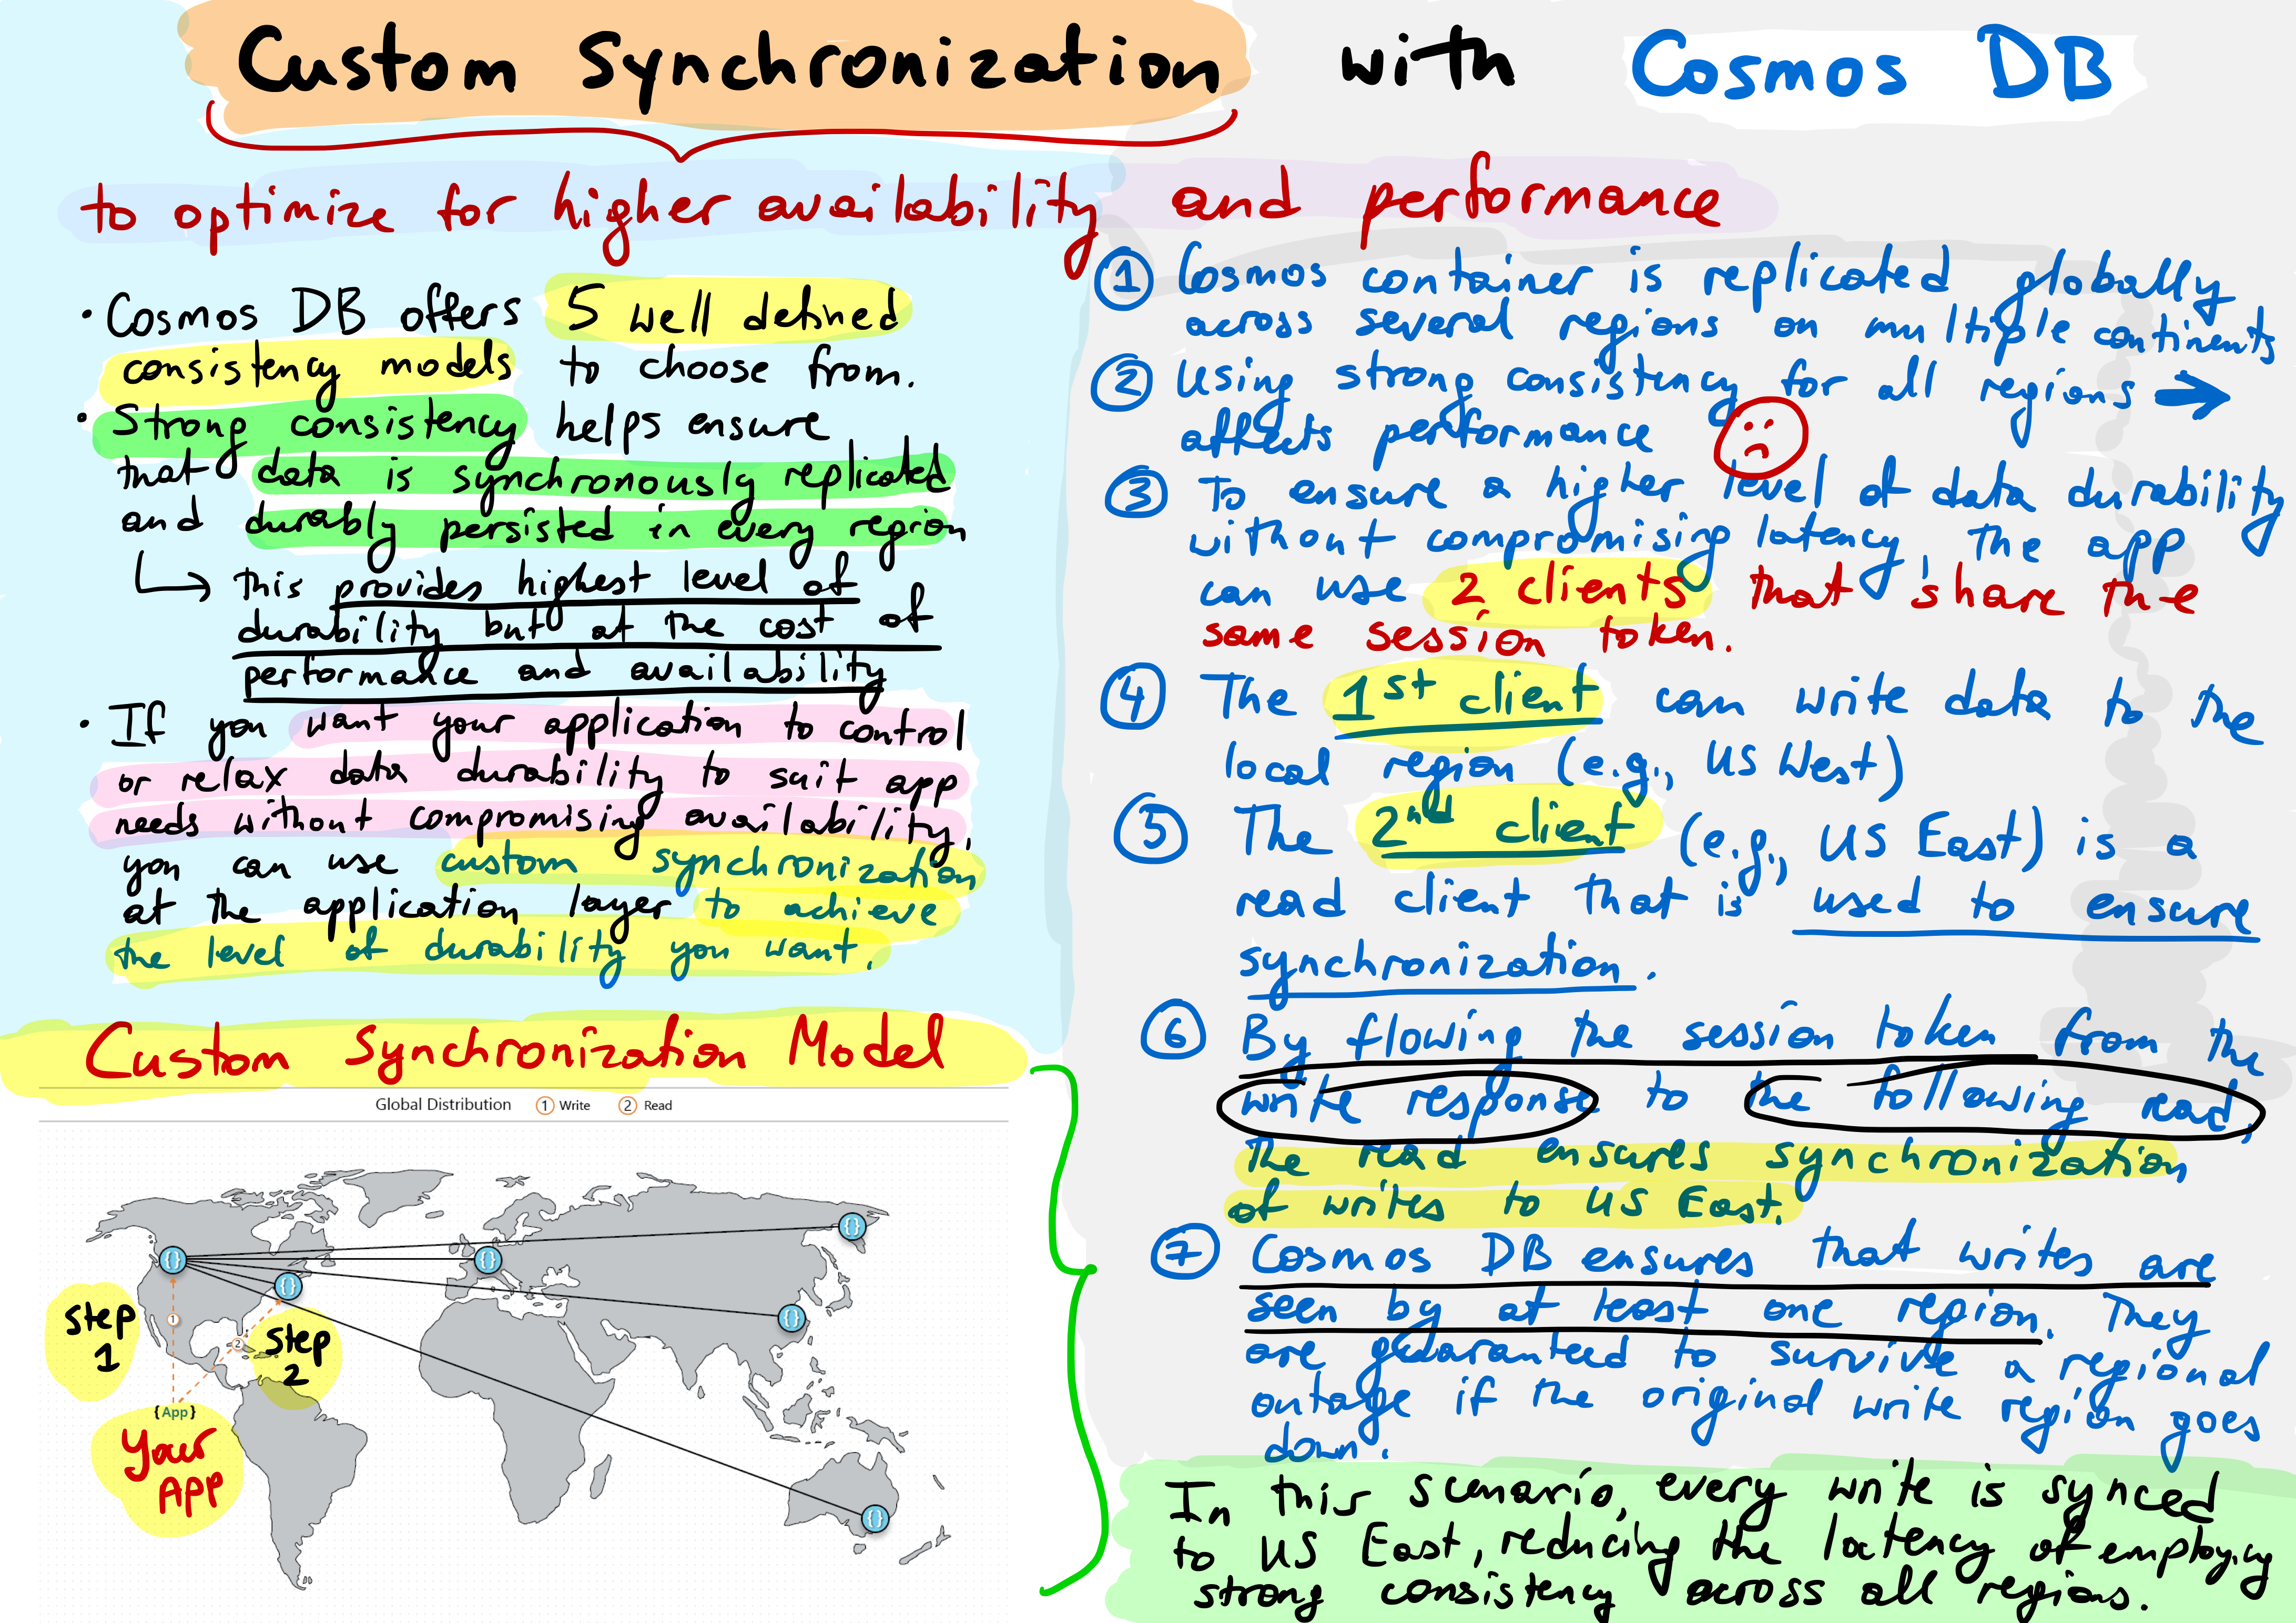 Custom Synchronization with Cosmos DB
to optimize for higher availability and performance
• Cosmos DB offers 5 well defined
consistency models to choose from.
• Strong consistency helps ensure
that data is synchronously replicated
and durably persisted in every region
this provides highest level of
durability but at the cost of
performance and availability
• If you want your application to control
or relax data durability to suit app
needs without compromising availability,
you can use custom synchronization
at the application layer to achieve
the level of durability you want.
Custom Synchronization Model
Global Distribution 1 Write 2 Read
{}
{}
{}
{}
{}
{}
step
1
1
2
step
2
{App}
Your
APP
1 Cosmos container is replicated globally
across several regions on multiple continents
2 Using strong consistency for all regions →
affects performance
3 To ensure a higher level of data durability
without compromising latency, the app
can use 2 clients that share the
same session token.
4 The 1st client can write data to the
local region (e.g., US West)
5 The 2nd client (e.g., US East) is a
read client that is used to ensure
synchronization.
6 By flowing the session token from the
write response to the following read,
the read ensures synchronization
of writes to US East.
7 Cosmos DB ensures that writes are
seen by at least one region. They
are guaranteed to survive a regional
outage if the original write region goes
down.
In this scenario, every write is synced
to US East, reducing the latency of employing
strong consistency across all regions.